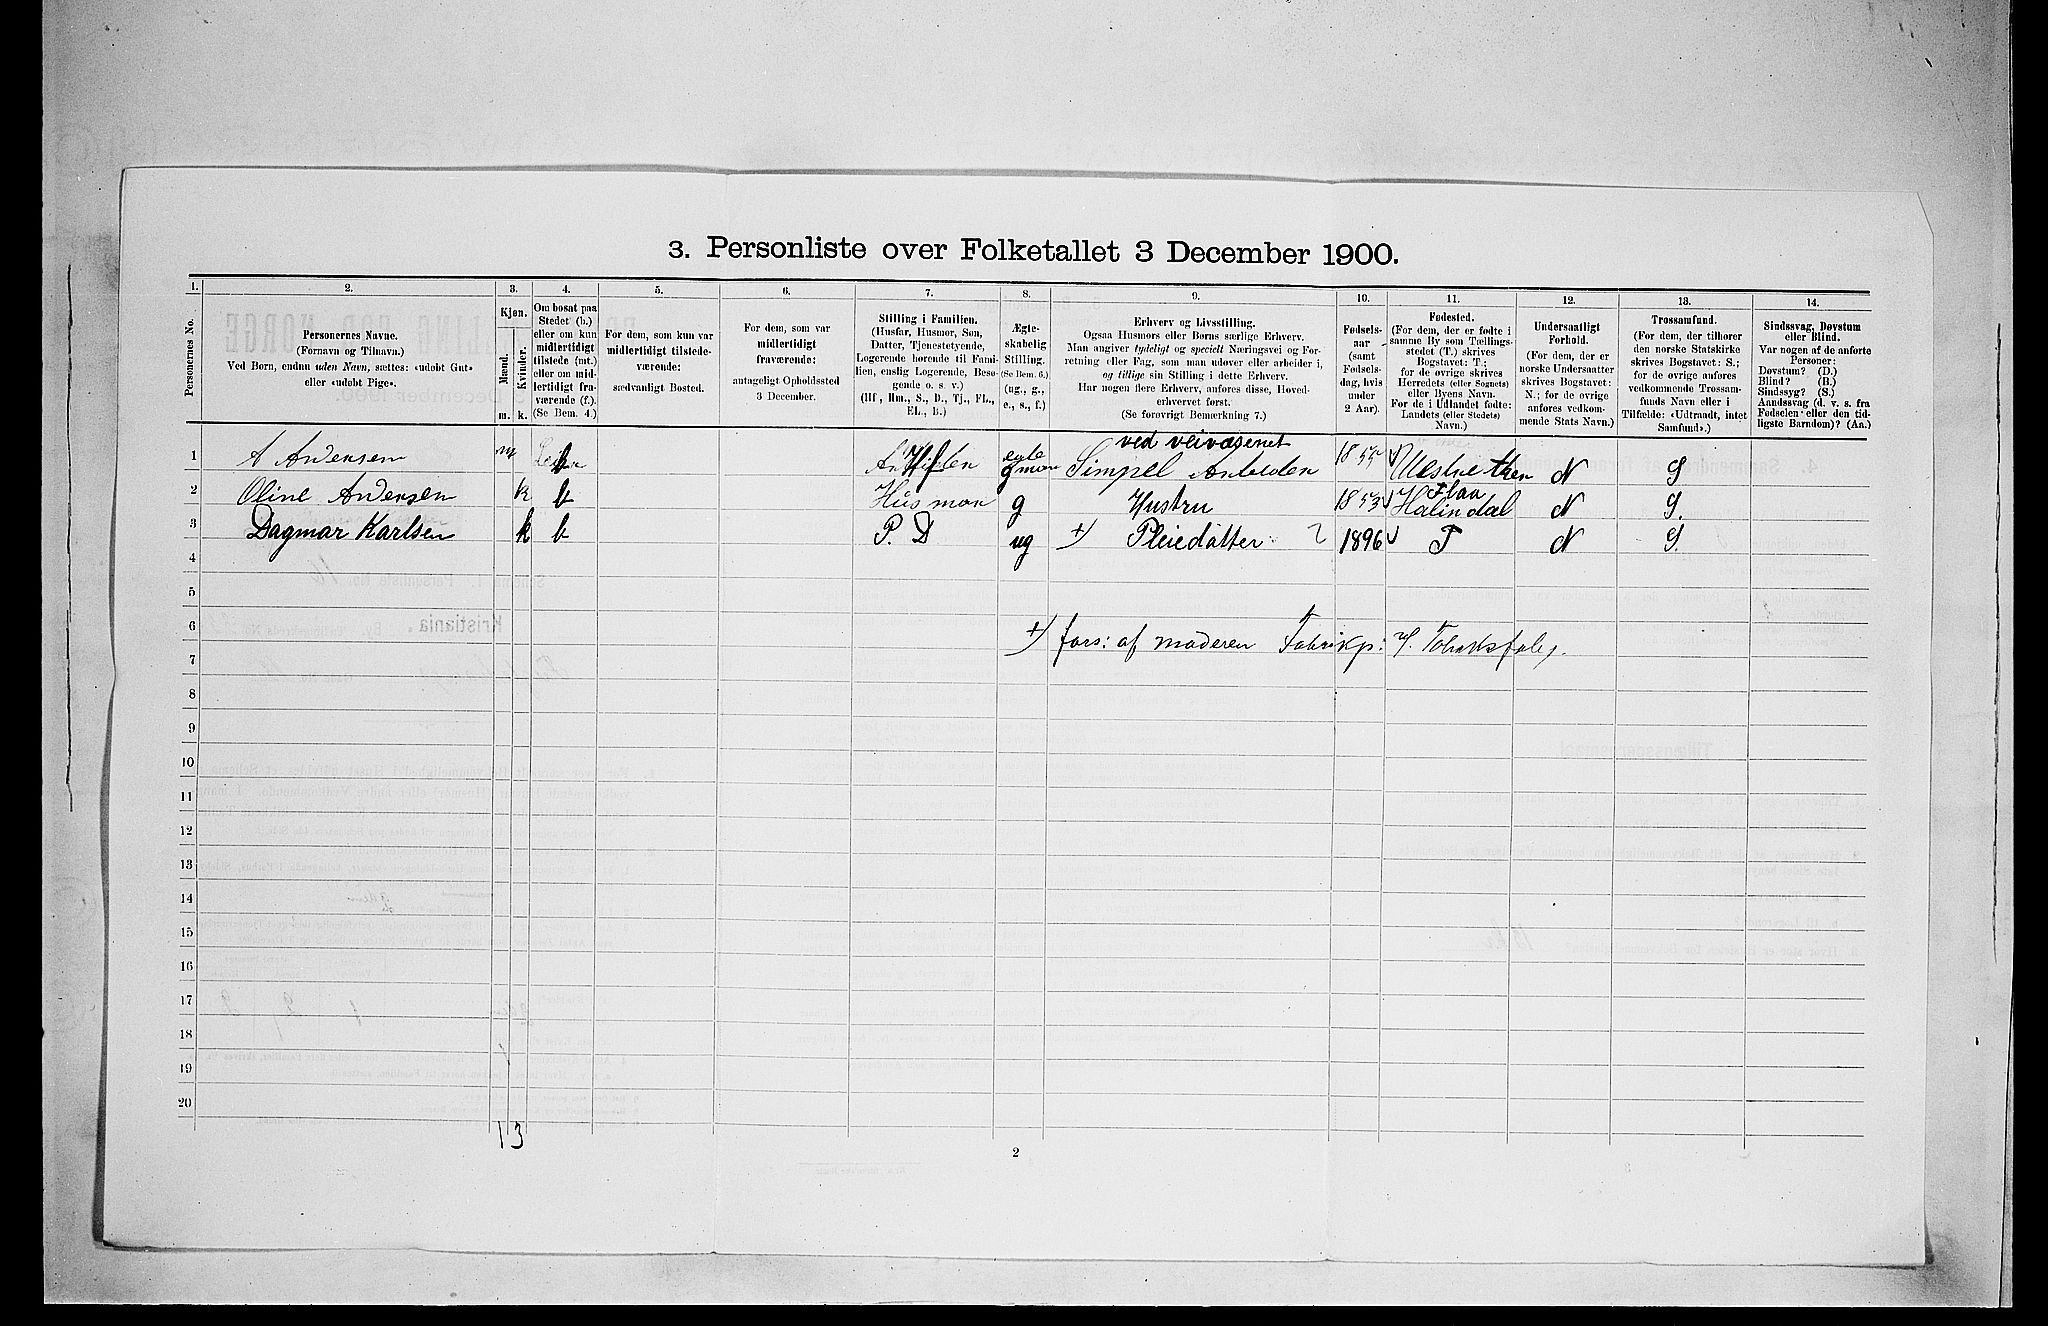 3. Personliste over Folketallet 3 December 1900.
1. 2. 3. 4. 5. 6. 7. 8. 9. 10. 11. 12. 13. 14.
Personernes No.
Personernes Navne.
(Fornavn og Tilnavn.)
Ved Børn, endnu uden Navn, sættes: «udøbt Gut»
eller «udøbt Pige».
Kjøn.
Mænd.
Kvinder.
m. k.
Om bosat paa
Stedet (b.)
eller om kun
midlertidigt
tilstede (mt.)
eller om mid-
lertidigt fra-
værende (f.).
(Se Bem. 4.)
For dem, som kun var
midlertidigt tilstede-
værende:
sædvanligt Bosted.
For dem, som var
midlertidigt
fraværende:
antageligt Opholdssted
3 December.
Stilling i Familien.
(Husfar, Husmor, Søn,
Datter, Tjenestetyende,
Logerende hørende til Fami-
lien, enslig Logerende, Besø-
gende o. s. v.)
(Hf, Hm., S., D., Tj., FL.,
EL., B.)
Ægte-
skabelig
Stilling.
(Se Bem. 6.)
(ug., g.,
e., s., f.)
Erhverv og Livsstilling.
Ogsaa Husmors eller Børns særlige Erhverv.
Man angiver tydeligt og specielt Næringsvei og For-
retning eller Fag, som man udøver eller arbeider i,
og tillige sin Stilling i dette Erhverv.
Har nogen flere Erhverv, anføres disse, Hoved-
erhvervet først.
(Se forøvrigt Bemærkning 7.)
Fødsels-
aar
(samt
Fødsels-
dag, hvis
under
2 Aar).
Fødested.
(For dem, der er fødte i
samme By som Tællings-
stedet (T.) skrives
Bogstavet: T.;
for de øvrige skrives
Herredets (eller Sognets)
eller Byens Navn.
For de i Udlandet fødte:
Landets (eller Stedets)
Navn.)
Undersaatligt
Forhold.
(For dem, der er
norske Undersaatter
skrives Bogstavet:
N.; for de øvrige
anføres vedkom-
mende Stats Navn.)
Trossamfund.
(For dem, der tilhører
den norske Statskirke
skrives Bogstavet: S.;
for de øvrige anføres
vedkommende Trossam-
funds Navn eller i
Tilfælde: «Udtraadt, intet
Samfund».)
Sindssvag, Døvstum
eller Blind.
Var nogen af de anførte
Personer:
Døvstum? (D.)
Blind? (B.)
Sindssyg? (S.)
Aandssvag (d. v. s. fra
Fødselen eller den tid-
ligste Barndom)? (Aa.)
ved veivæsenet
1 A Andersen m b Hf g Simpel Arbeider N S
Flaa
2 Oline Andersen k b Husmor g Hustru 1853 Halindal N S.
3 Dagmar Karlsen k b P. D ug +) Pleiedatter 1896 T N S.
4
5
6
+) fors: af moderen Fabrikp:
7
8
9
10
11
12
13
14
15
16
17
18
19
20
1 3
2